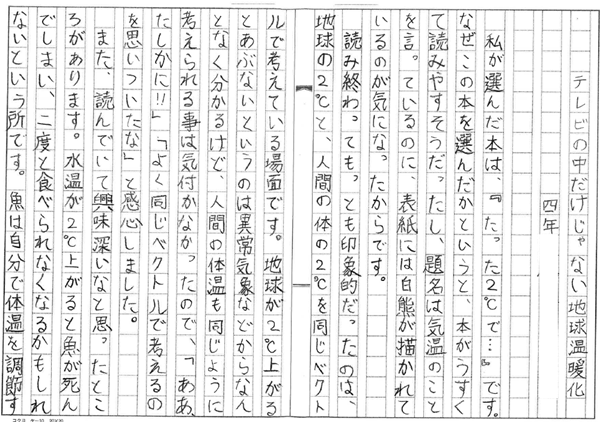 テレビの中だけじゃない地球温暖化
四年
私が選んだ本は、『たった2℃で…』です。
なぜこの本を選んだかというと、本がうすく
て読みやすそうだったし、題名は気温のこと
を言っているのに、表紙には白熊が描かれて
いるのが気になったからです。
読み終わっても、とても印象的だったのは、
地球の2℃と、人間の体の2℃を同じベクト
ルで考えている場面です。地球が2℃上がる
とあぶないというのは異常気象などからなん
となく分かるけど、人間の体温も同じように
考えられる事は気付かなかったので、「ああ、
たしかに!!」「よく同じベクトルで考えるの
を思いついたな」と感心しました。
また、読んでいて興味深いなと思ったとこ
ろがあります。水温が2℃上がると魚が死ん
でしまい、二度と食べられなくなるかもしれ
ないという所です。魚は自分で体温を調節す